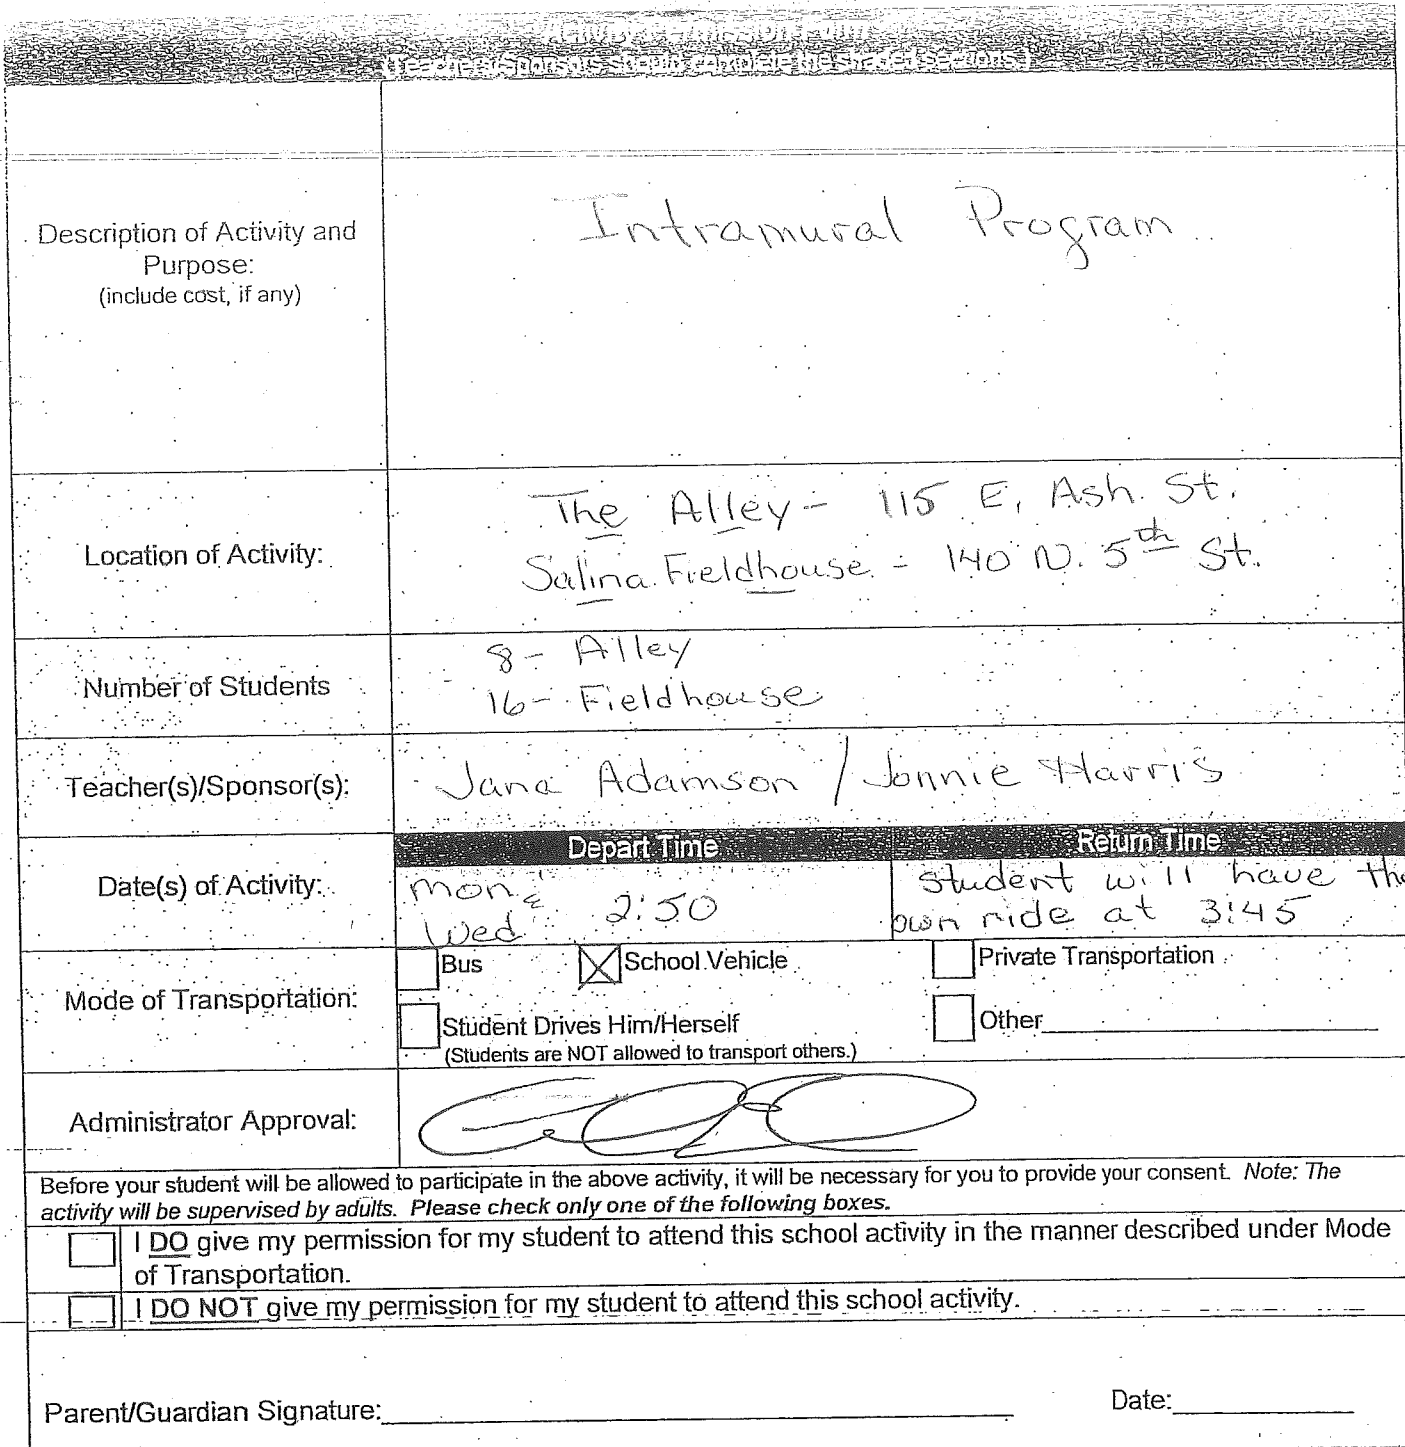 Activity Permission Form
(Teachers/Sponsors should complete the shaded sections.)
Description of Activity and
Purpose:
(include cost, if any)
Intramural Program
Location of Activity:
The Alley - 115 E. Ash St.
Salina Fieldhouse - 140 N. 5th St.
Number of Students
8 - Alley
16 - Fieldhouse
Teacher(s)/Sponsor(s):
Jana Adamson / Jonnie Harris
Depart Time
Return Time
Date(s) of Activity:
Mon &
Wed
2:50
student will have the
own ride at 3:45
Mode of Transportation:
Bus
School Vehicle
Private Transportation
Student Drives Him/Herself
(Students are NOT allowed to transport others.)
Other
Administrator Approval:
Before your student will be allowed to participate in the above activity, it will be necessary for you to provide your consent. Note: The
activity will be supervised by adults. Please check only one of the following boxes.
I DO give my permission for my student to attend this school activity in the manner described under Mode
of Transportation.
I DO NOT give my permission for my student to attend this school activity.
Parent/Guardian Signature:
Date: